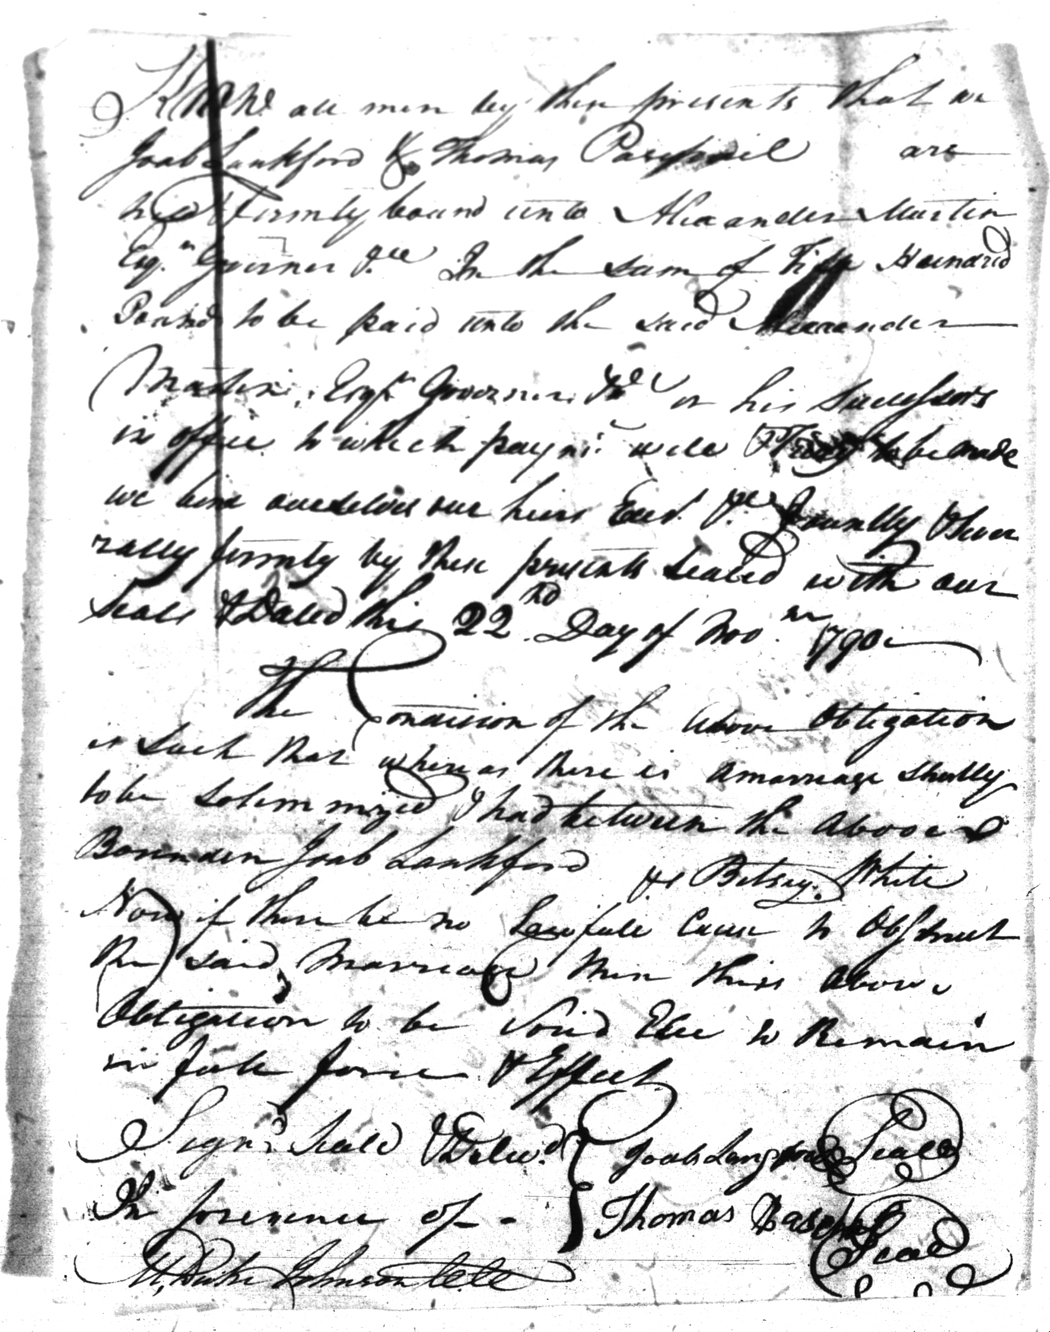 Know all men by these presents that we
Joab Lankford & Thomas Paschael are
held & firmly bound unto Alexander Martin
Esqr. Governer &c In the sum of Five Hundred
Pounds to be paid unto the said Alexander
Martin, Esqr. Governer &c or his Successors
in office to which paymt. well & Truly to be made
we bind ourselves our heirs Exrs. &c Jountly & Seve
rally firmly by these presents Sealed with our
Seals & Dated this 22nd Day of Nov.mr 1790
The Condision of the above Obligation
is Such that whereas there is a marriage Shortly
to be Solemmized & had between the above
Bounden Joab Lankford & Betsey White
Now if there be no Lawfull Cause to Obstruct
the said Marriage then this above
Obligation to be Void Else to Remain
in full force & Effect
Signd. Seald & Deliverd.
Joab Langford Seal
In presence of -
Thomas Paschal Seal
M, Duke Johnson CCC